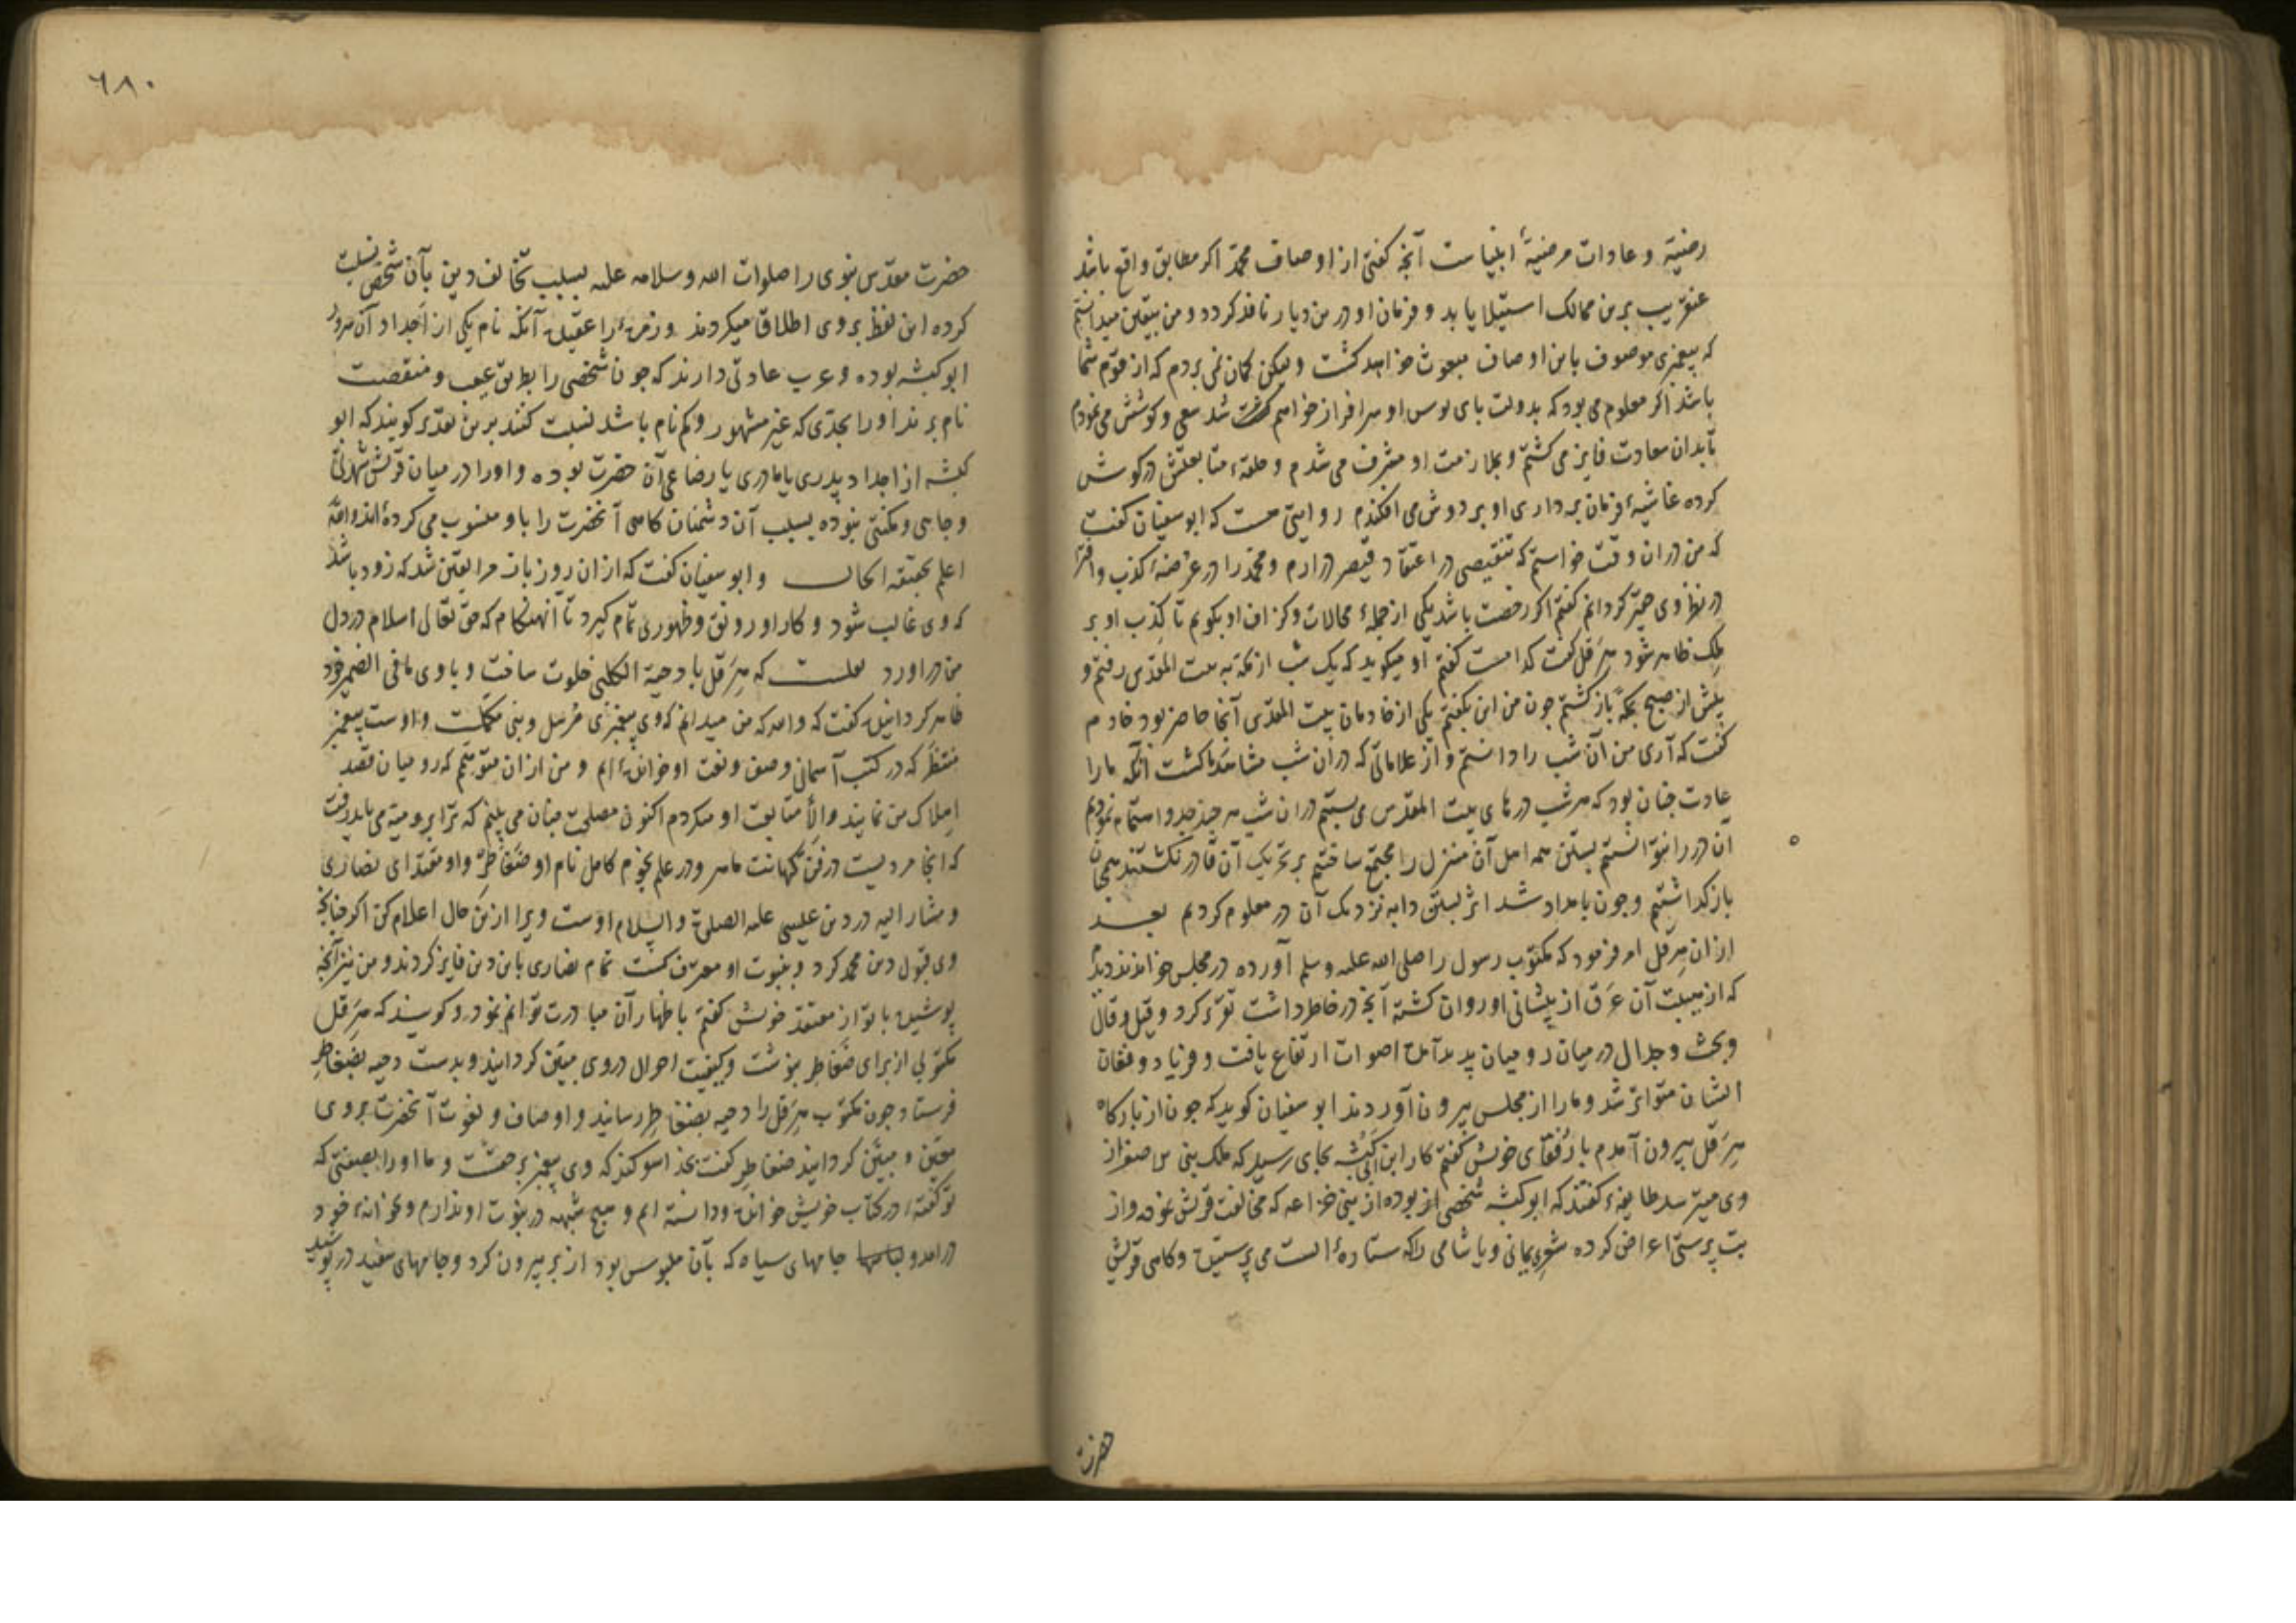 رضیّه و عادات مرضیّهٔ انبیاست آنچه کفتی از اوصاف محمّد اکر مطابق واقع باشد
عنقریب برین ممالک استیلا یابد و فرمان او درین دیار نافذ کردد و من بیقین میدانستم
که پیغمبری موصوف باین اوصاف مبعوث خواهد کشت ولیکن کمان نمی بردم که از قوم شما
باشد اکر معلوم می بود که بدولت پای بوس او سرافراز خواهم شد سعی و کوشش می نمودم
تا بدان سعادت فایز می کشتم و بملازمت او مشرف می شدم و حلقهٔ متابعتش در کوش
کرده غاشیهٔ فرمان برداری او بر دوش می افکندم روایتی هست که ابوسفیان کفت
که من در ان وقت خواستم که تنقیصی در اعتقاد قیصر در ارم و محمّد را در عرضهٔ کذب و افترا
در نظر وی کردانم کفتم اکر رخصت باشد یکی از جملهٔ محالات و کزاف او بکویم تا کذب او بر
ملک ظاهر شود هرقل کفت کدامست کفتم او میکوید که یک شب از مکه به بیت المقدّس رفتم و
پیش از صبح بمکّه باز کشتم چون من این بکفتم یکی از خادمان بیت المقدّس آنجا حاضر بود خادم
کفت که آری من آن شب را دانستم و از علاماتی که در ان شب مشاهده کشت آنکه ما را
عادت چنان بود که هر شب درهای بیت المقدس می بستیم در ان شب هر چند جدّ و اهتمام نمودیم
ان در را نتوانستیم بستن همه اهل آن منزل را مجتمع ساختیم بر تحریک آن قادر نکشتند همچنان
باز کذاشتیم و چون بامداد شد اثر بستن دابه نزدیک آن در معلوم کردیم بعد
ازان هرقل امر فرمود که مکتوب رسول را صلی الله علیه وسلم آورده در مجلس خواندند دیدم
که از هیبت آن عرق از پیشانی او روان کشته آنچه در خاطر داشت تقریر کرد و قیل و قال
و بحث و جدال در میان رومیان پدید آمده اصوات ارتفاع یافت و فریاد و فغان
ایشان متواتر شد و ما را از مجلس بیرون آوردند ابوسفیان کوید که چون از بارکاه
هرقل بیرون آمدم با رفقای خویش کفتم کار ابن ابی کبشه بجای رسید که ملک بنی الاصفر از
وی میترسد طایفهٔ کفتند که ابو کبشه شخصی بوده از بنی خزاعه که مخالفت قریش نموده و از
بت پرستی اعراض کرده شعری یمانی و یا شامی را که ستارهٔ است می پرستیده و کاهی قریش
حضرت
٦٨٠
حضرت مقدّس نبوی را صلوات الله وسلامه علیه بسبب تخالف دین بآن شخص نسبت
کرده این لفظ بر وی اطلاق میکردند و زمرهٔ را عقیده آنکه نام یکی از اجداد آن سرور
ابو کبشه بوده و عرب عادتی دارند که چون شخصی را بطریق عیب و منقصت
نام برند او را بجدّی که غیر مشهور و کم نام باشد نسبت کنند برین تقدیر کویند که ابو
کبشه از اجداد پدری یا مادری یا رضاعی آن حضرت بوده و او را در میان قریش شهرتی
و جاهی و مکنتی نبوده بسبب آن دشمنان کاهی آنحضرت را باو منسوب می کرده اند والله
اعلم بحقیقه الحال و ابوسفیان کفت که ازان روز باز مرا یقین شد که زود باشد
که وی غالب شود و کار او رونق و ظهوری تمام کیرد تا آنهنکام که حق تعالی اسلام در دل
من در اورد نقلست که هرقل با دحیة الکلبی خلوت ساخت و با وی ما فی الضمیر خود
ظاهر کردانیده کفت که والله که من میدانم که وی پیغمبری مرسل و نبی مکملست و اوست پیغمبر
منتظر که در کتب آسمانی وصف و نعت او خوانده ایم و من ازان متوهّمم که رومیان قصد
اهلاک من نمایند والّا متابعت او میکردم اکنون مصلحت چنان می بینم که ترا برومیه می باید رفت
که انجا مردیست در فن کهانت ماهر و در علم نجوم کامل نام او ضغاطر و او مقتدای نصاری
و مشار الیه در دین عیسی علیه الصلوة والسلام اوست ویرا ازین حال اعلام کن اکر چنانچه
وی قبول دین محمد کرد و بنبوت او معترف کشت تمام نصاری باین دین فایز کردند و من نیز آنچه
پوشیده با تو از معتقد خویش کفتم باظهار آن مبادرت توانم نمود و کویند که هرقل
مکتوبی از برای ضغاطر نوشت و کیفیت احوال در وی مبیّن کردانید و بدست دحیه بضغاطر
فرستاد چون مکتوب هرقل را دحیه بضغاطر رسانید و اوصاف و نعوت آنحضرت بر وی
معیّن و مبیّن کردانید ضغاطر کفت بخدا سوکند که وی پیغمبر برحقست و ما او را بصفتی که
تو کفتهٔ در کتاب خویش خوانده و دانسته ایم و هیچ شبههٔ در نبوت او ندارم و بخانهٔ خود
در امد و جامهای سیاه که بآن ملبوس بود از بر بیرون کرد و جامهای سفید در پوشید